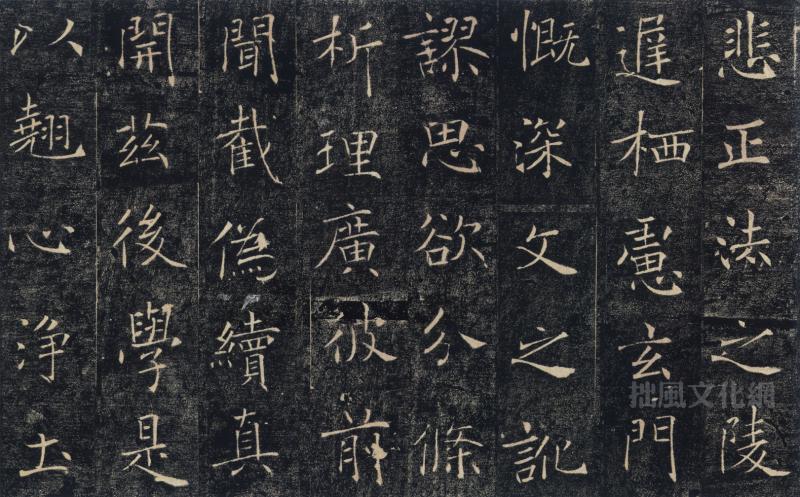 悲正法之陵
遲栖慮玄門
慨深文之訛
謬思欲分條
析理廣彼前
聞截偽續真
開茲後學是
以翹心淨土
拙風文化網